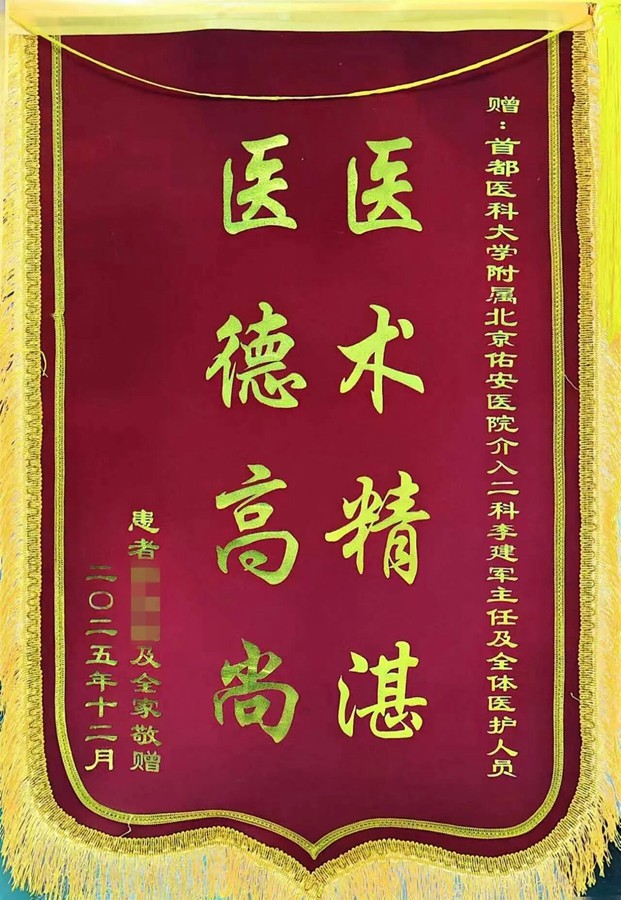 赠：首都医科大学附属北京佑安医院介入二科李建军主任及全体医护人员
医术精湛
医德高尚
患者及全家敬赠
二〇二五年十二月